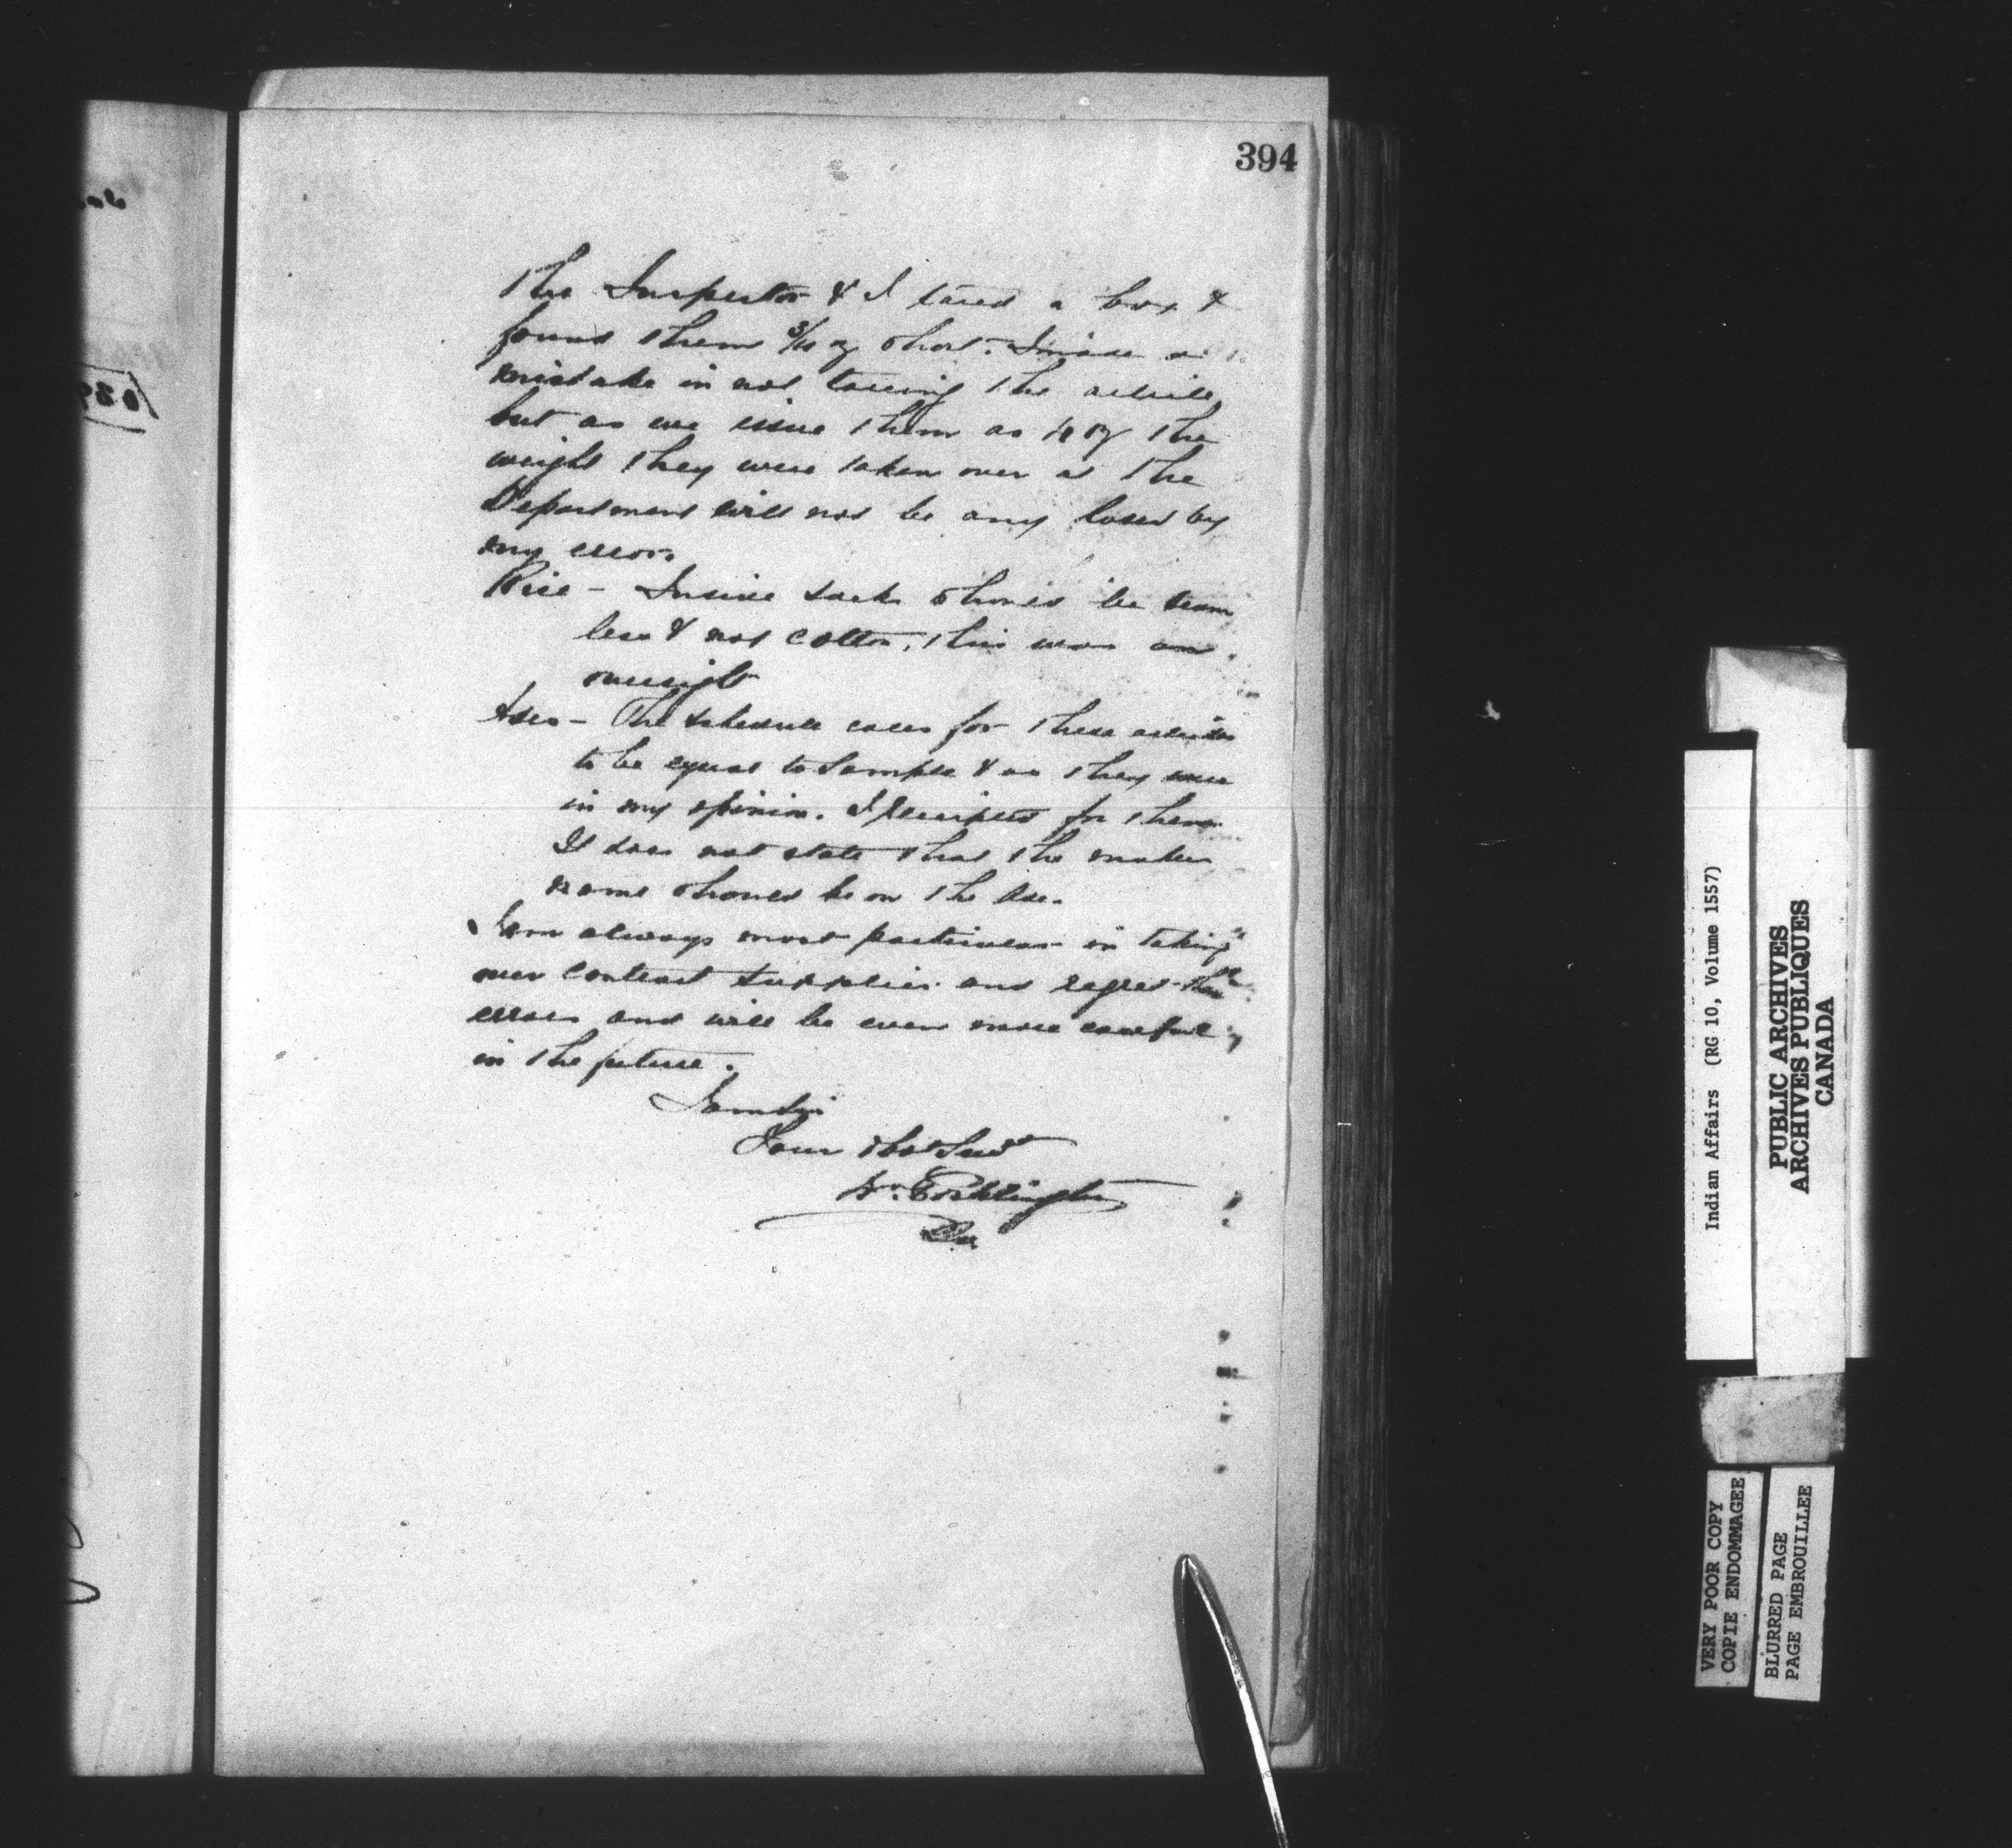 394
The Inspector & I tared a box &
found them 3/10 oz short. I made a
mistake in not taring the article,
but as we issue them as the
weight they were taken over at the
Department will not be any loser by
my error.
Rice - Inside sack should be seam
less & not cotton, this was an
oversight
Axes - The schedule calls for these articles
to be equal to sample & as they were
in my opinion. I receipted for them
It does not state that the makers
name should be on the Axe.
I am always most particular in taking
over contract supplies and regret these
errors and will be even more careful
in the future.
I am Sir
Your Obt Servt
Wm. Pocklington
Indian Affairs (RG 10, Volume 1557)
PUBLIC ARCHIVES
ARCHIVES PUBLIQUES
CANADA
VERY POOR COPY
COPIE ENDOMMAGEE
BLURRED PAGE
PAGE EMBROUILLEE